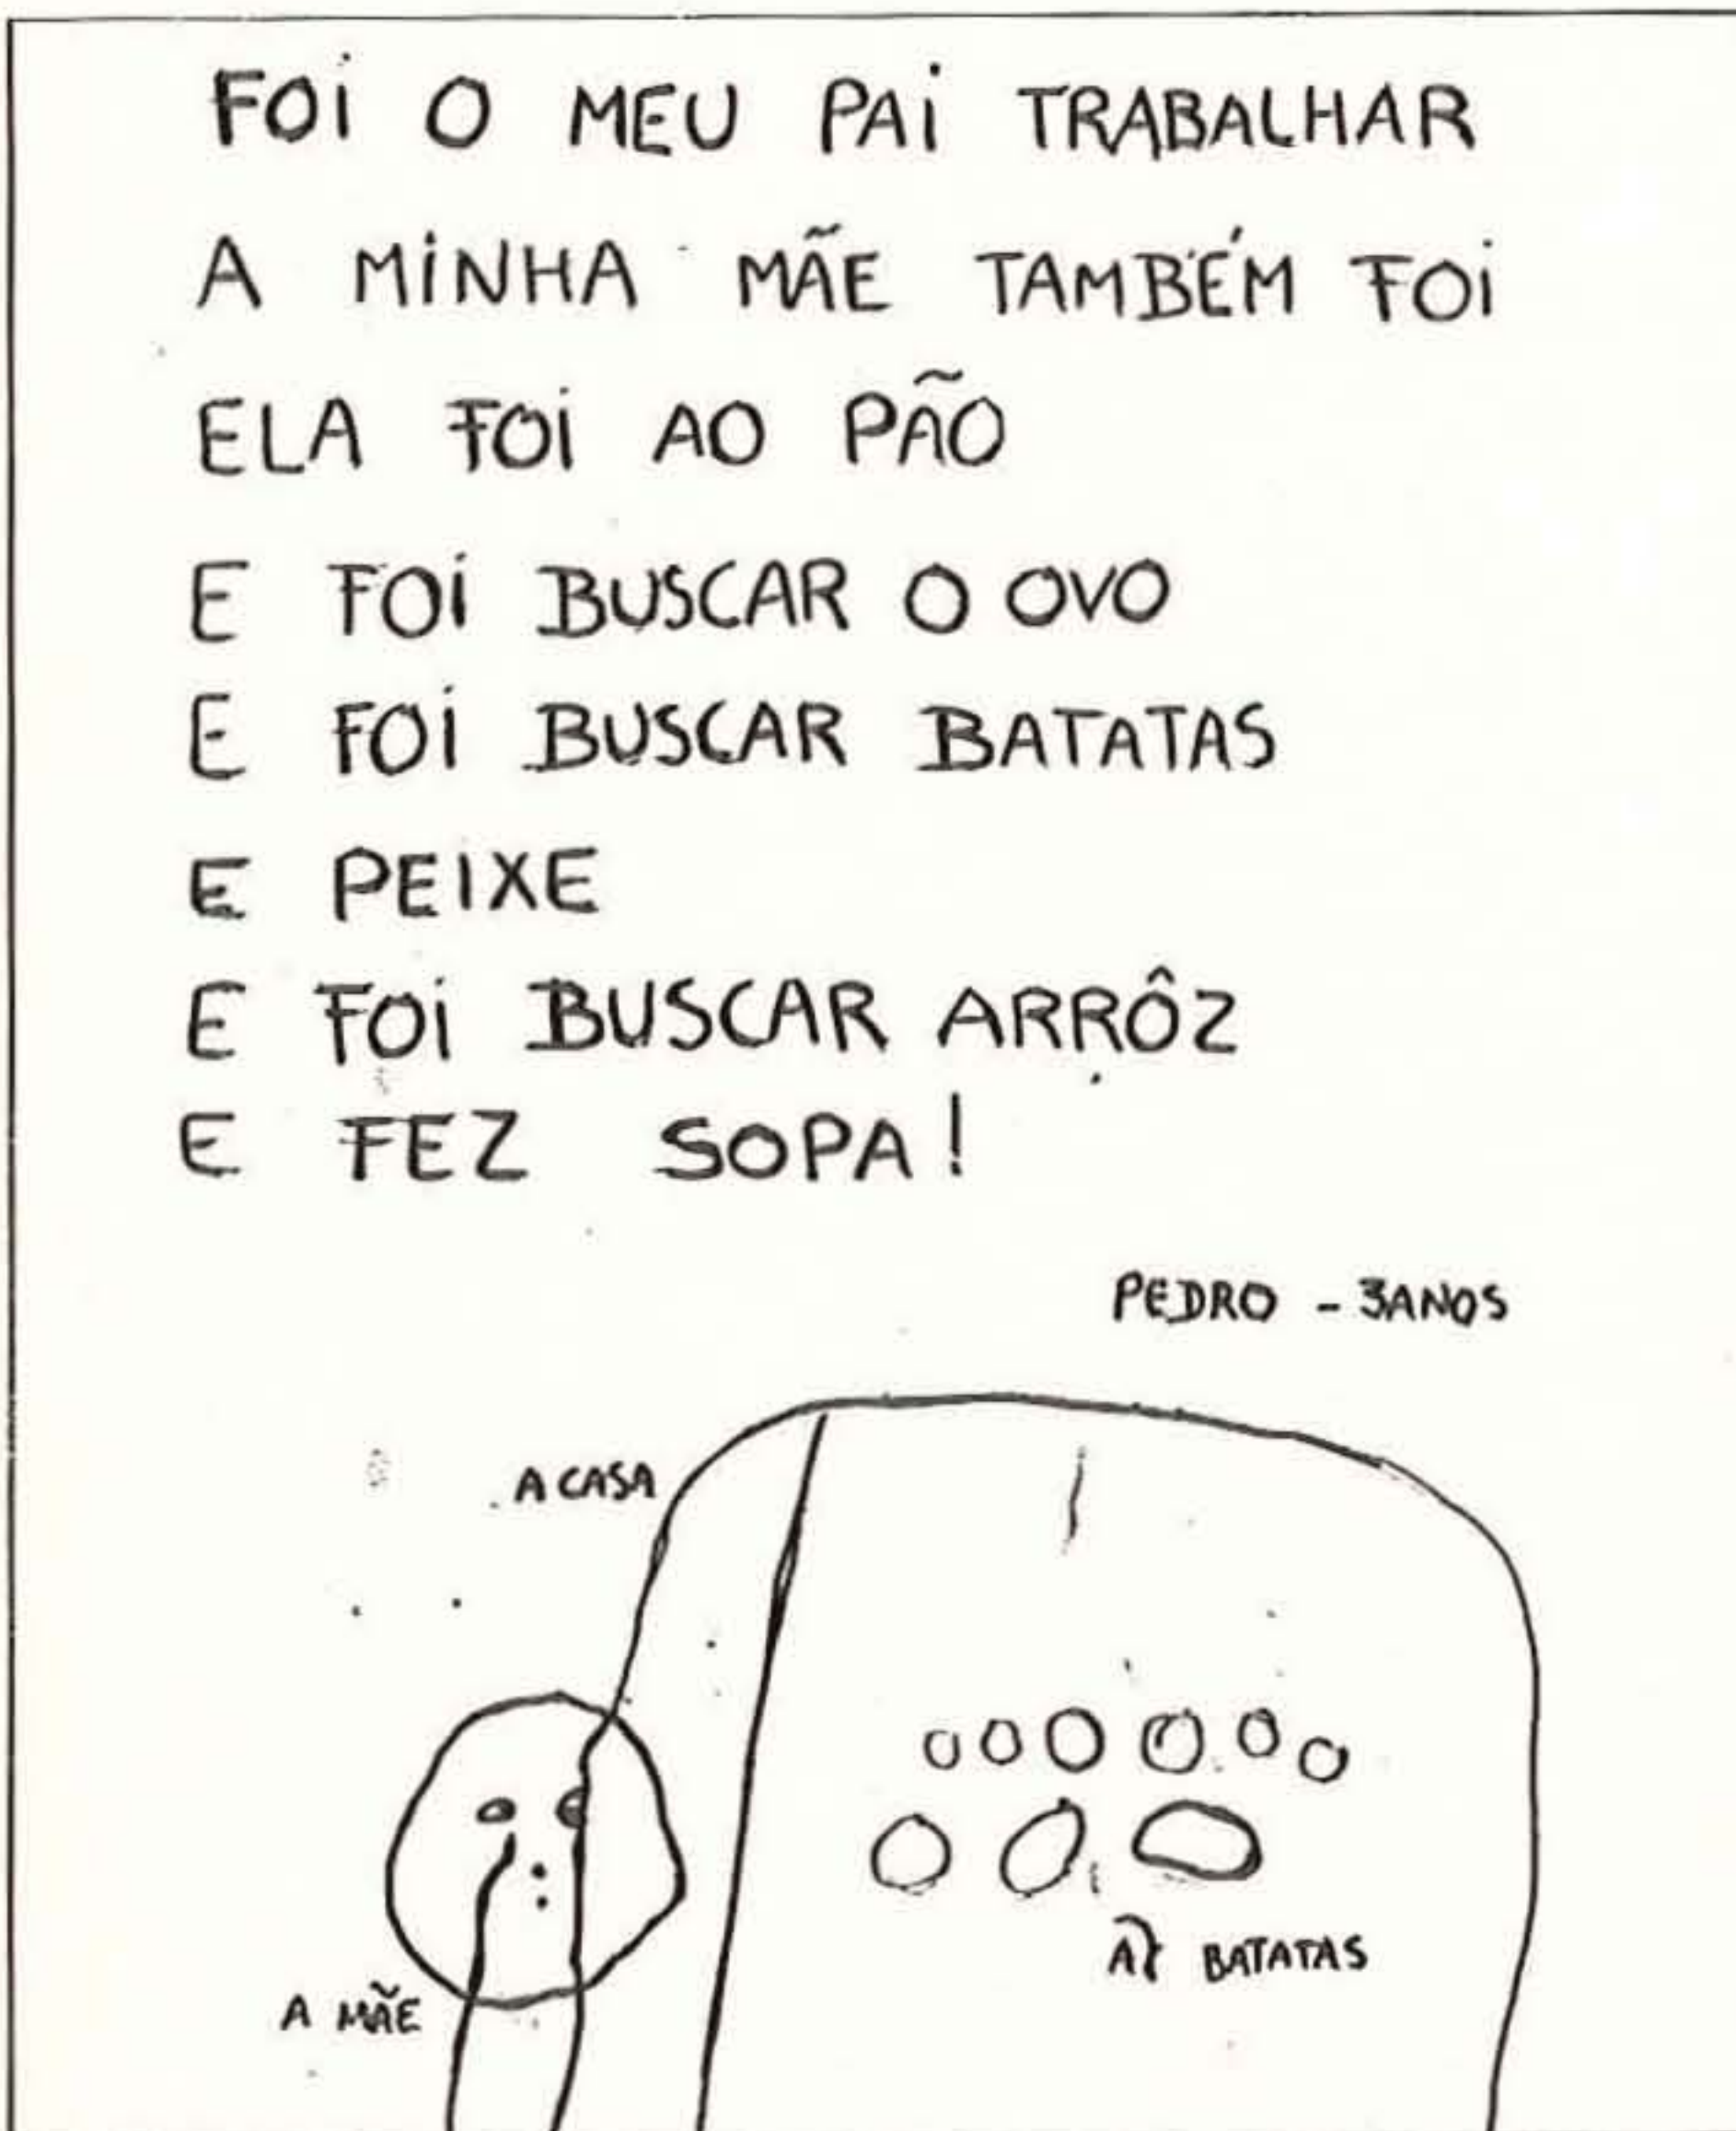 FOI O MEU PAI TRABALHAR
A MINHA MÃE TAMBÉM FOI
ELA FOI AO PÃO
E FOI BUSCAR O OVO
E FOI BUSCAR BATATAS
E PEIXE
E FOI BUSCAR ARRÔZ
E FEZ SOPA!
PEDRO - 3ANOS
A CASA
AS BATATAS
A MÃE